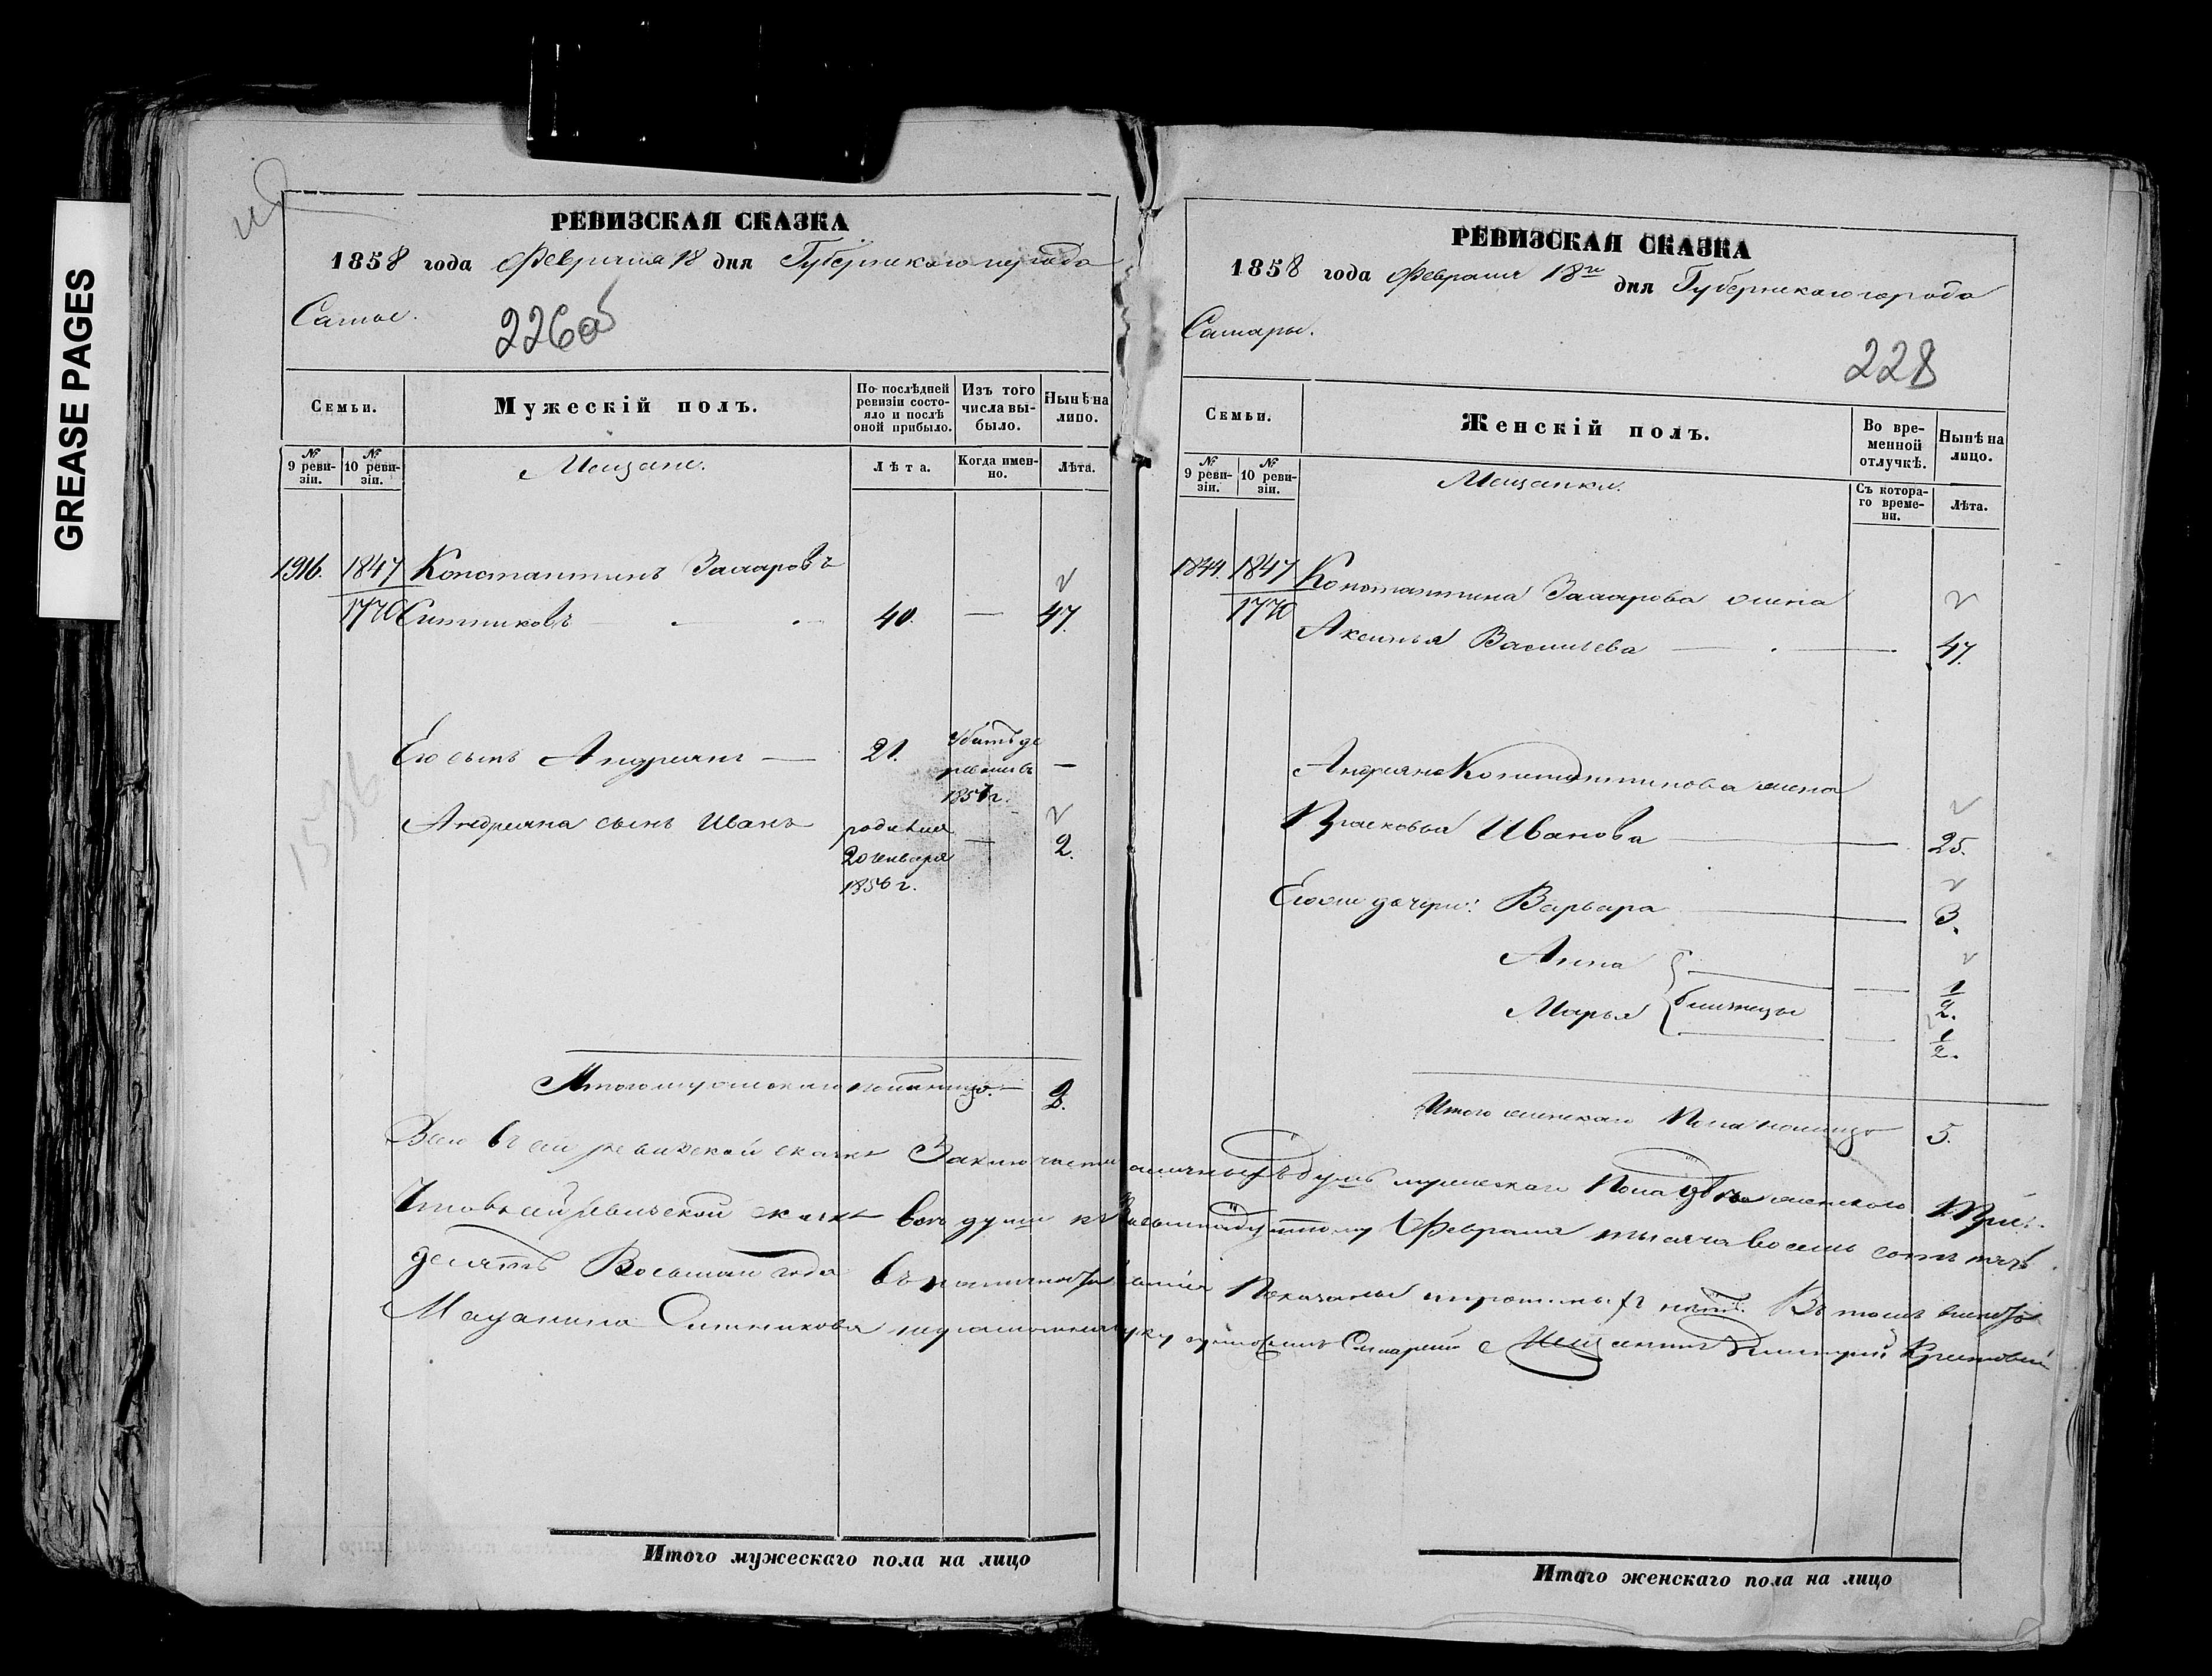 GREASE PAGES
РЕВИЗСКАЯ СКАЗКА
1858 года Февраля 18 дня Губернскаго города
226об
Семьи.
Мужескій полъ.
По послѣдней ревизіи состояло и послѣ оной прибыло.
Изъ того числа выбыло.
Нынѣ на лицо.
№ 9 ревизіи.
№ 10 ревизіи.
Мещане.
Лѣта.
Когда именно.
Лѣта.
1916. 1847 Константинъ Захаровъ
1770 Ситниковъ 40. — 47.
Его сынъ Андреянъ — 21. —
1857 г.
Андреяна сынъ Иванъ родился — 2.
20 генваря
1856 г.
Итого мужескаго пола на лицо — 2.
Итого мужескаго пола на лицо
РЕВИЗСКАЯ СКАЗКА
1858 года Февраля 18го дня Губернскаго города
Самары.
228
Семьи.
Женскій полъ.
Во временной отлучкѣ.
Нынѣ на лицо.
№ 9 ревизіи.
№ 10 ревизіи.
Мещанки.
Съ котораго времени.
Лѣта.
1844. 1847 Константина Захарова жена
1770 Аксинья Васильева — 47.
Андреяна Константинова жена
Прасковья Иванова — 25.
дочери: Варвара — 3.
Анна — 1/2.
Марья близнецы — 1/2.
Итого женскаго пола на лицо 5.
ревизской сказке душъ мужескаго пола женскаго
ревизской сказке всѣ души къ Восьмнадцатому Февраля тысяча восемь сотъ пять
десятъ Восьмаго года Показаны и прописныхъ нѣтъ. Въ томъ вместо
Мещанина Ситникова
Итого женскаго пола на лицо